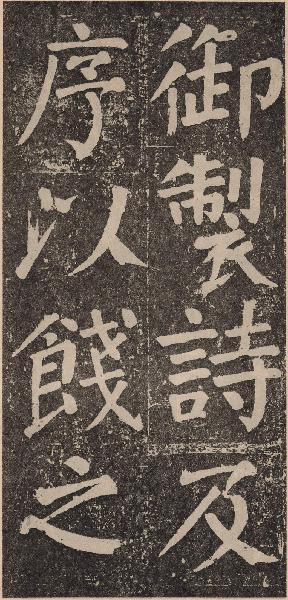 御製詩及
序以餞之